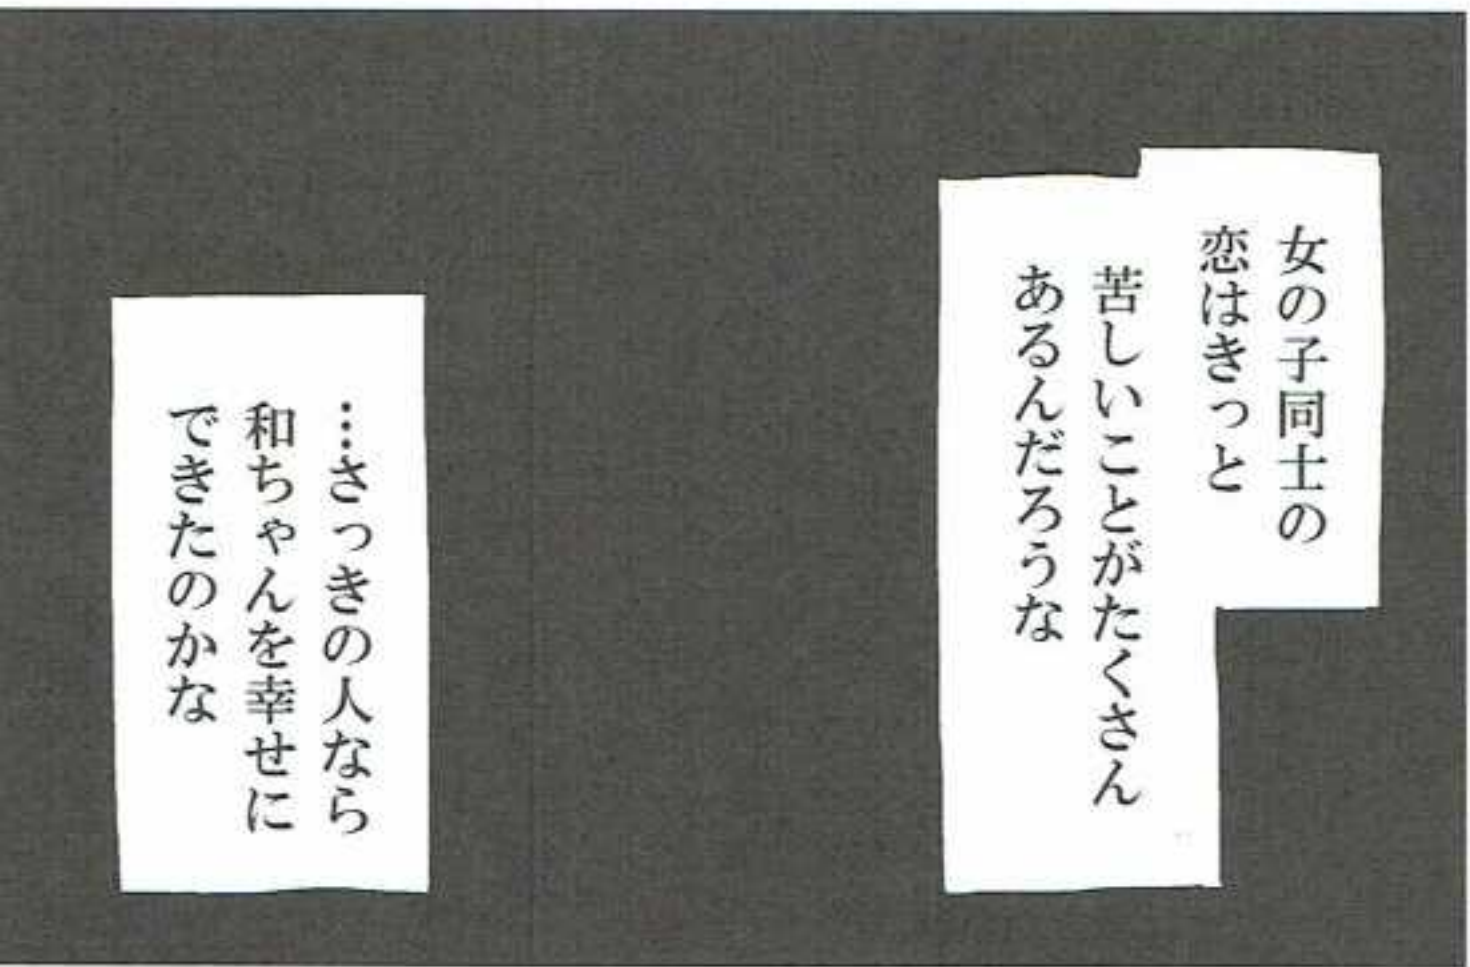 女の子同士の
恋はきっと
苦しいことがたくさん
あるんだろうな
…さっきの人なら
和ちゃんを幸せに
できたのかな